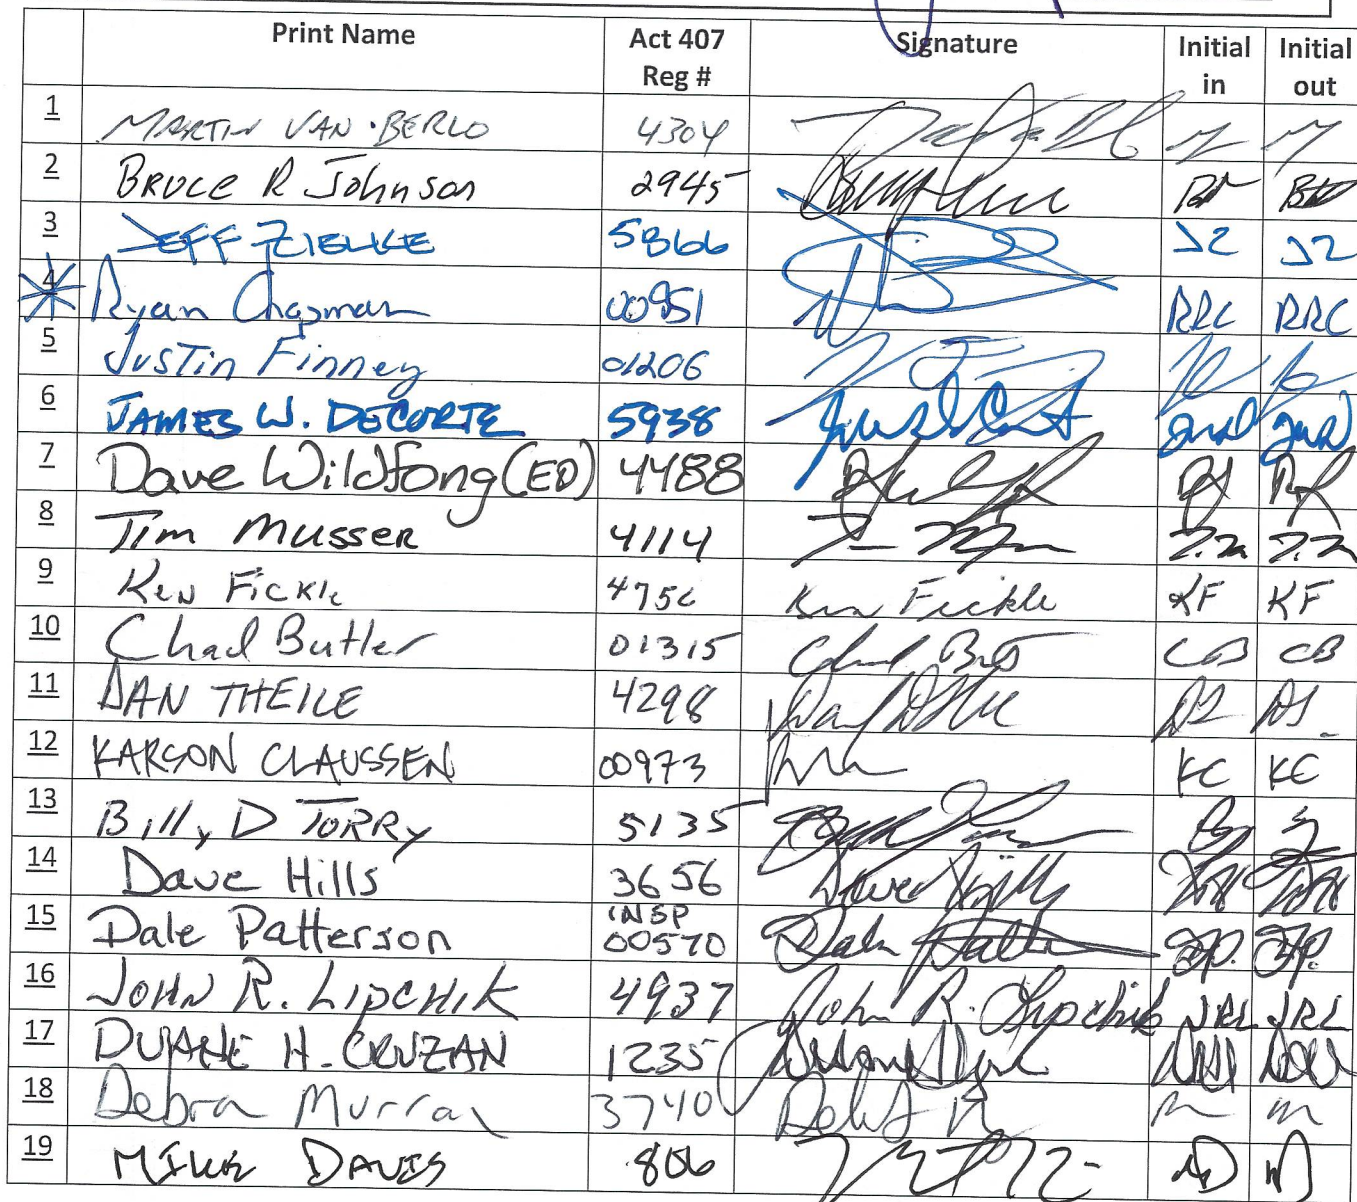 Print Name Act 407 Signature Initial Initial
Reg # in out
1 MARTIN VAN·BERLO 4304
2 BRUCE R Johnson 2945
3 JEFF ZIELKE 5866 JZ JZ
4 Ryan Chapman 00951 RRC RRC
5 JUSTIN Finney 01206
6 JAMES W. DECORTE 5938 JWD JWD
7 Dave Wildfong (ED) 4488
8 Tim Musser 4114 T.M T.M
9 Ken Fickle 475 Ken Fickle KF KF
10 Chad Butler 01315 CB CB
11 DAN THEILE 4298
12 KARSON CLAUSSEN 00973 KC KC
13 Billy D TORRY 5135
14 Dave Hills 3656 Dave Hills
15 Dale Patterson INSP 00570 Dale Patterson
16 JOHN R. LIPCHIK 4937 John R. Lipchik JRL JRL
17 DUANE H. CRUZAN 1235
18 Debra Murray 3740
19 MIKE DAVIS 806